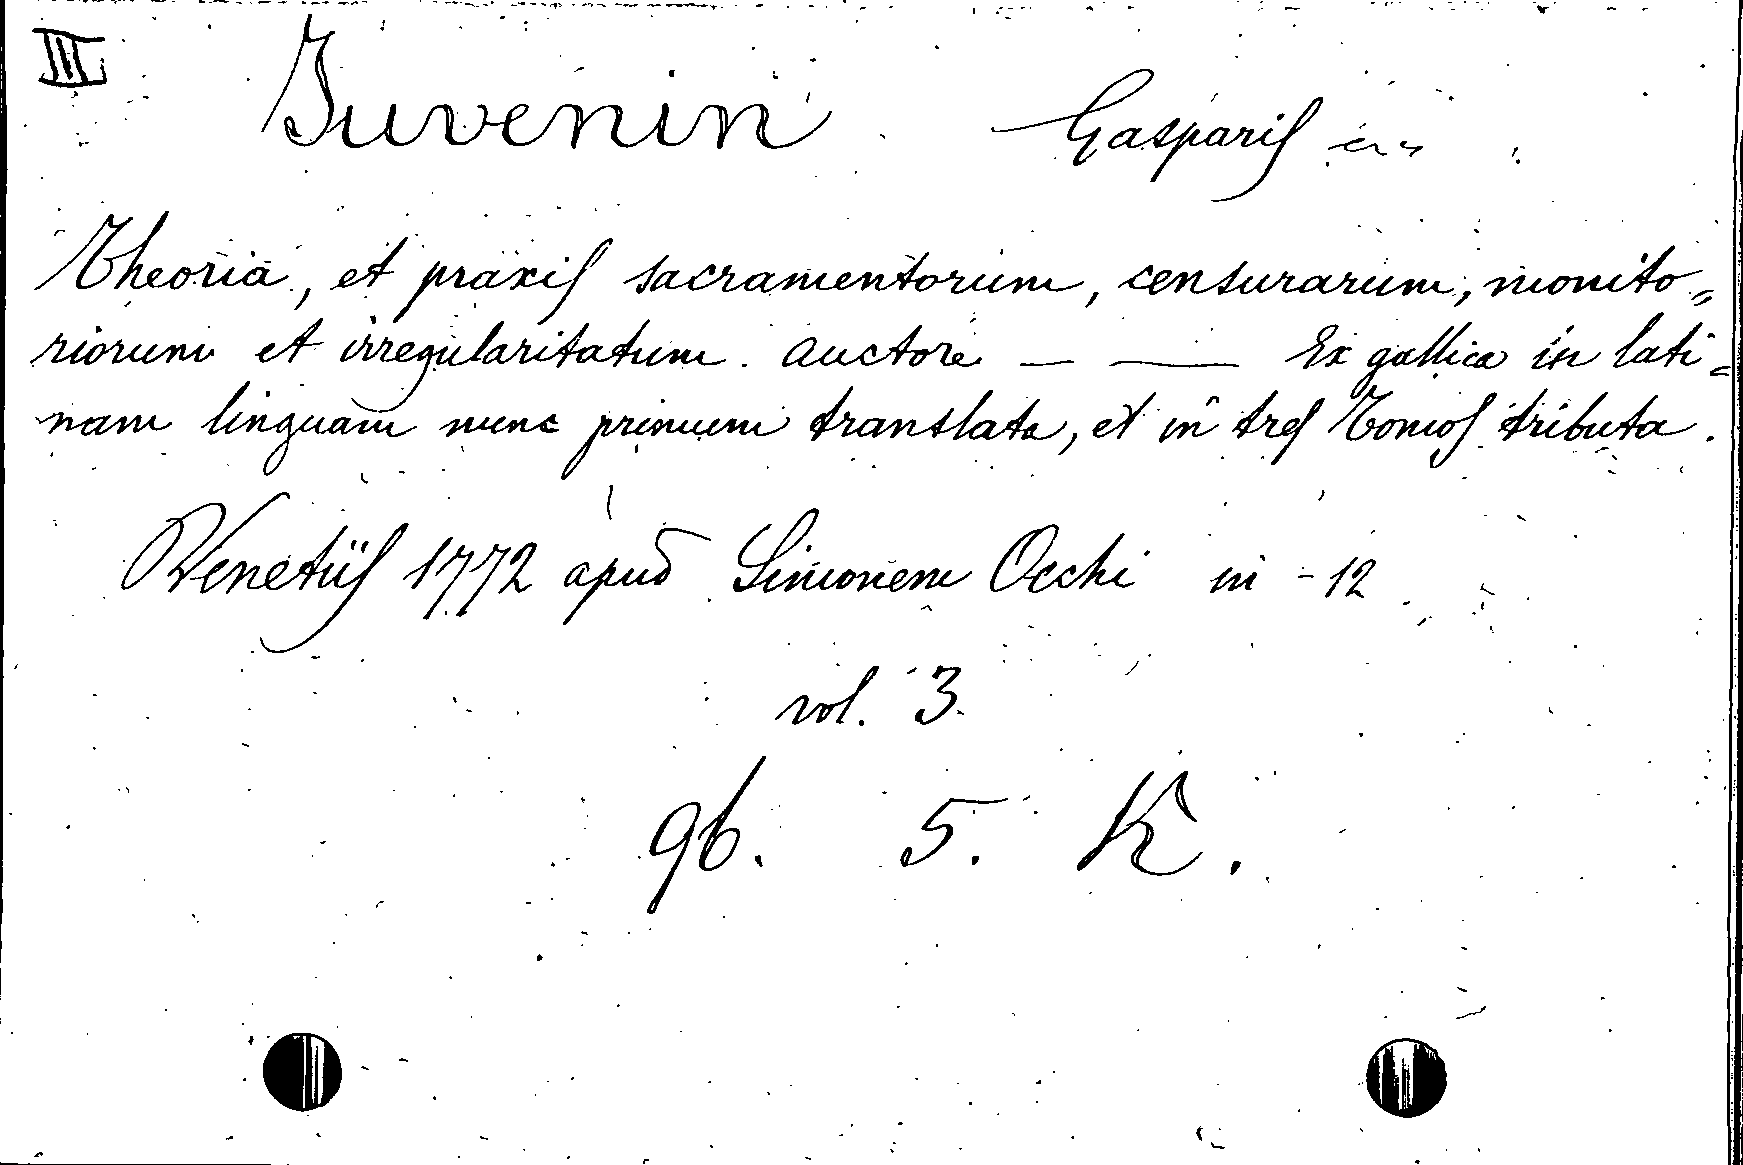 III Juvenin Gasparis
Theoria, et praxis sacramentorum, censurarum, monito„
riorum et irregularitatum. auctore — — Ex gallica in lati„
nam linguam nunc primum translata, et in tres Tomos tributa.
Venetiis 1772 apud Simonem Occhi in - 12
vol. 3.
96. 5. K.